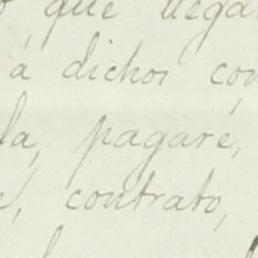 que llega
á dichos con
la, pagaré,
contrato,